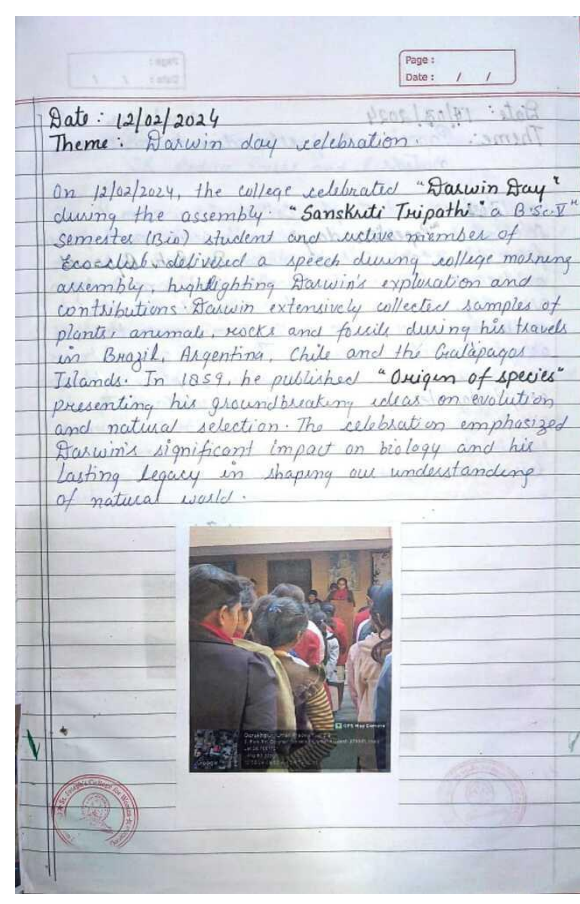 Page :
Date : / /
Date : 12/02/2024
Theme : Darwin day celebration.
On 12/02/2024, the college celebrated "Darwin Day"
during the assembly. "Sanskriti Tripathi" a B.Sc. V
Semester (Bio) student and active member of
Ecoclub, delivered a speech during college morning
assembly, highlighting Darwin's exploration and
contributions. Darwin extensively collected samples of
plants, animals, rocks and fossils during his travels
in Brazil, Argentina, Chile and the Galápagos
Islands. In 1859, he published "Origin of species"
presenting his groundbreaking ideas on evolution
and natural selection. The celebration emphasized
Darwin's significant impact on biology and his
lasting legacy in shaping our understanding
of natural world.
GPS Map Camera
Gorakhpur, Uttar Pradesh
Google